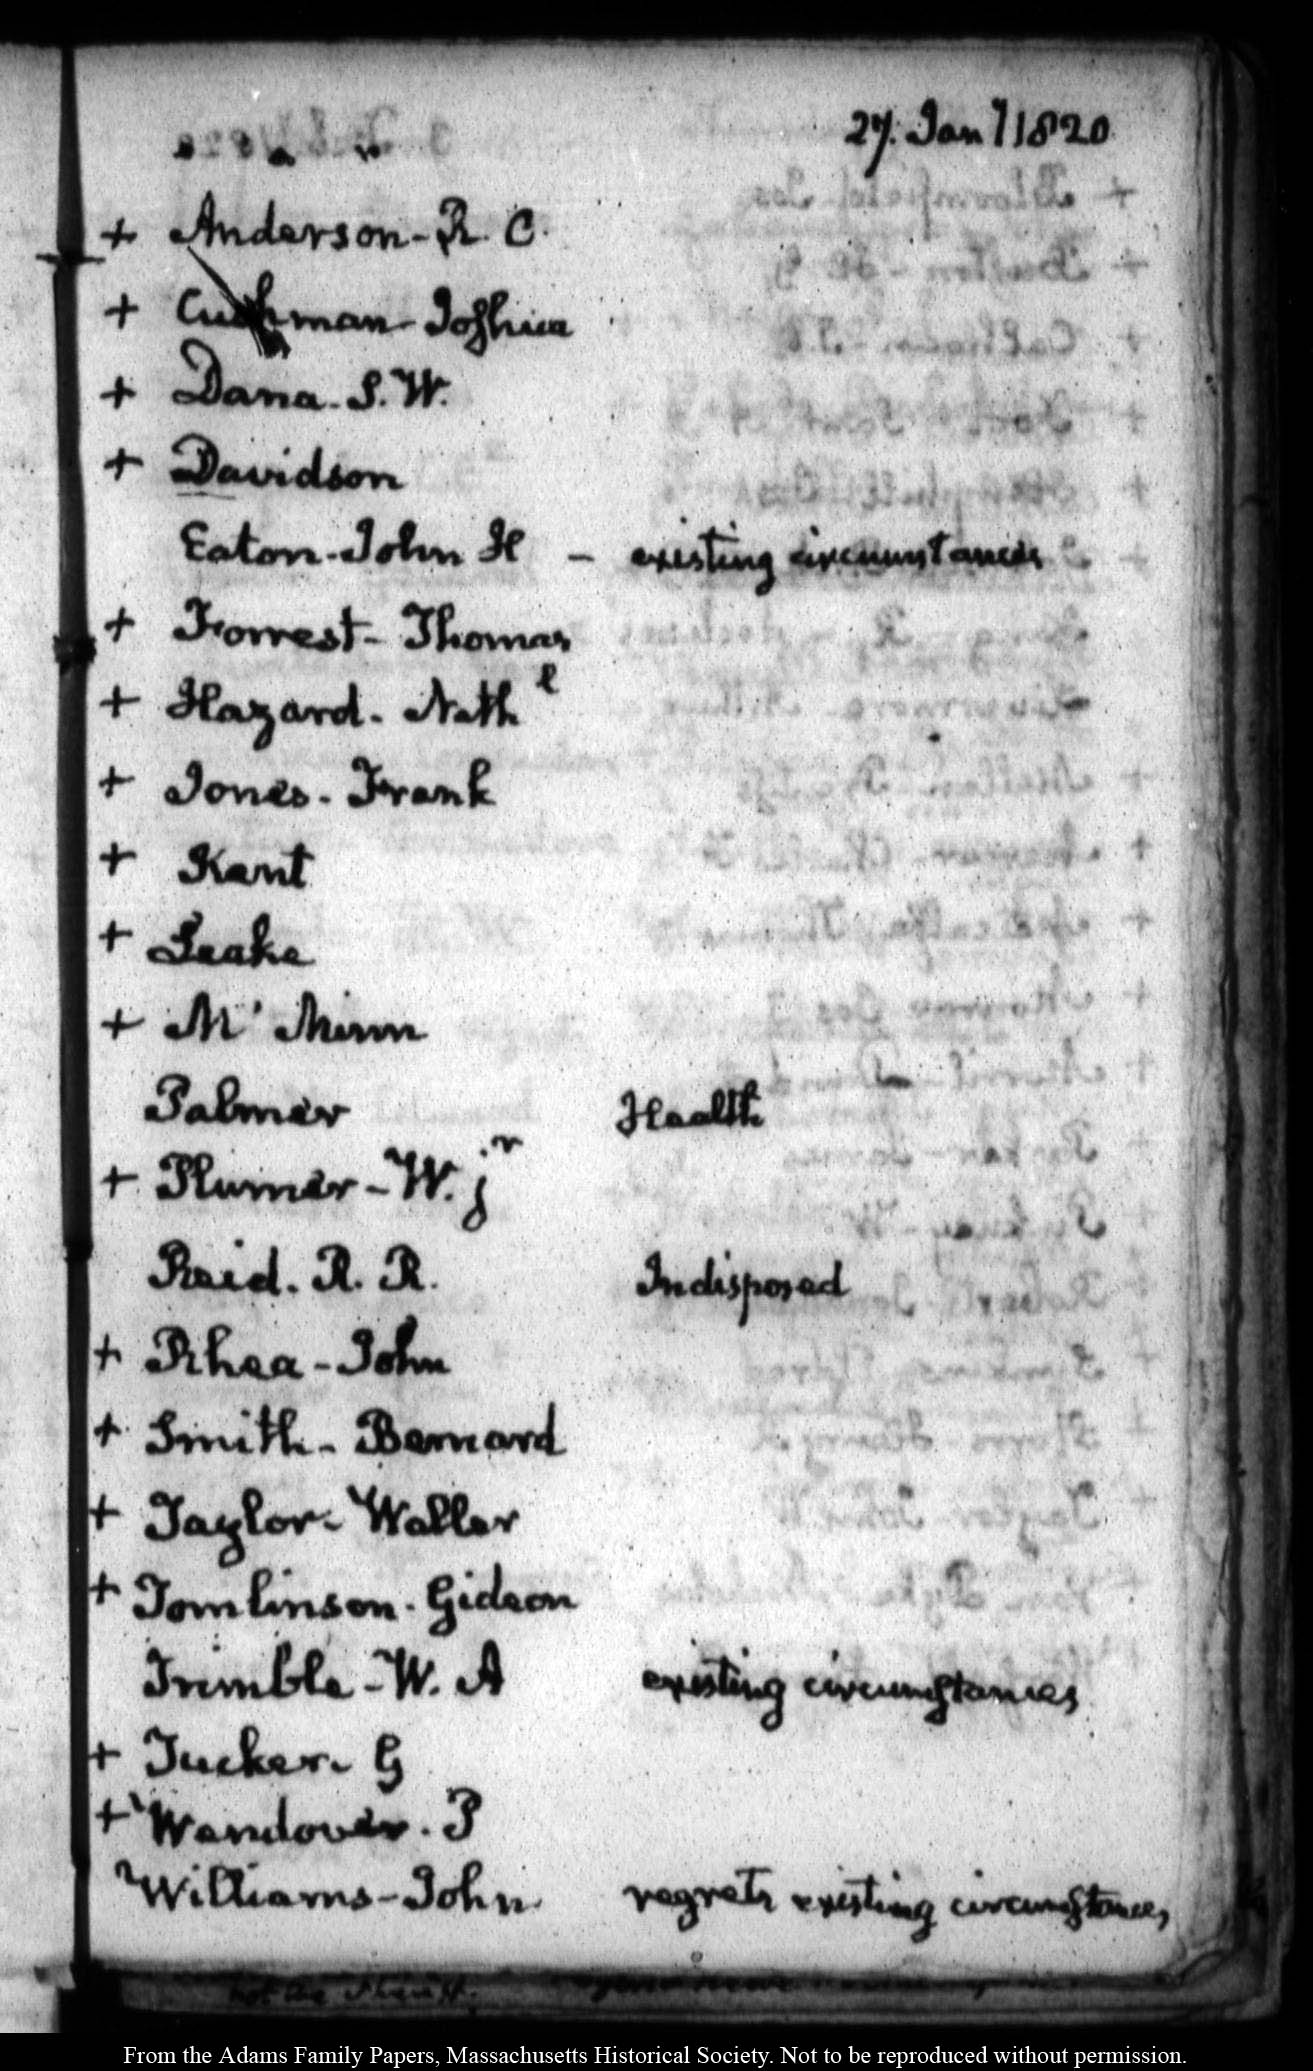 27. Jany 1820
+ Anderson - R. C.
+ Cushman - Joshua
+ Dana - S. W.
+ Davidson
Eaton - John H - existing circumstances
+ Forrest - Thomas
+ Hazard - Nathl
+ Jones - Frank
+ Kent
+ Leake
+ M'Minn
Palmer Health
+ Plumer - W. jr
Reid. R. R. Indisposed
+ Rhea - John
+ Smith - Bernard
+ Taylor - Waller
+ Tomlinson - Gideon
Trimble - W. A existing circumstances
+ Tucker - G
+ Wendover. P
Williams - John regrets existing circumstances
From the Adams Family Papers, Massachusetts Historical Society. Not to be reproduced without permission.